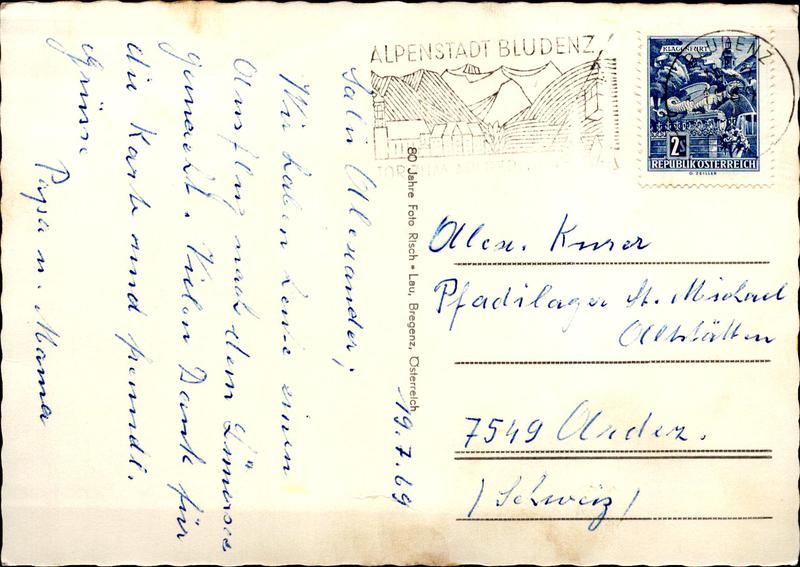 ALPENSTADT BLUDENZ
BLUDENZ
KLAGENFURT
2S
REPUBLIK ÖSTERREICH
O. ZEILLER
80 Jahre Foto Risch • Lau, Bregenz, Österreich
19.7.69
Salü Alexander,
Wir haben heute einen
Ausflug nach dem Lünersee
gemacht. Vielen Dank für
die Karte und freundl.
Grüsse
Papa u. Mama
Alex. Kurer
Pfadilager St. Michael
Altstätten
7549 Ardez.
(Schweiz)